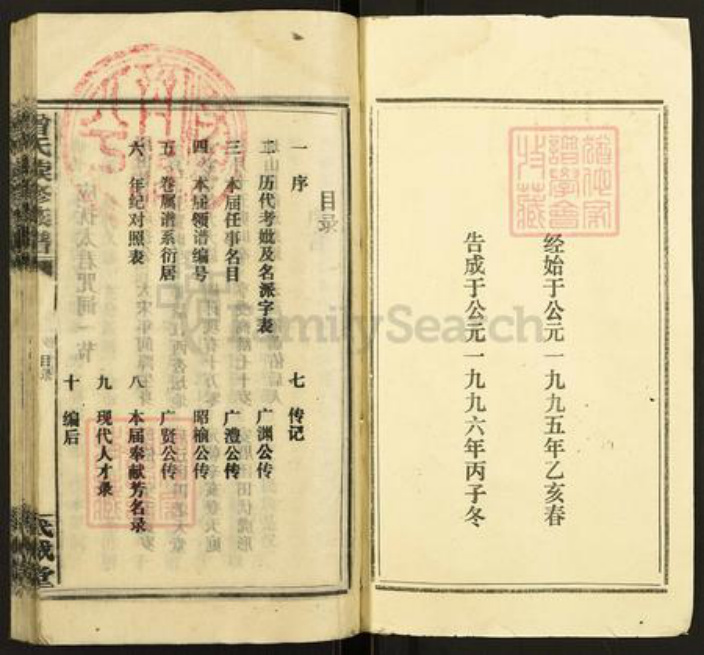 经始于公元一九九五年乙亥春
告成于公元一九九六年丙子冬
目录
一 序
二 历代考妣及名派字表
三 本届任事名目
四 本届领谱编号
五 卷属谱系衍居
六 年纪对照表
七 传记
广渊公传
广澧公传
昭榆公传
广贤公传
八 本届奉献芳名录
九 现代人才录
十 编后
目录
FamilySearch